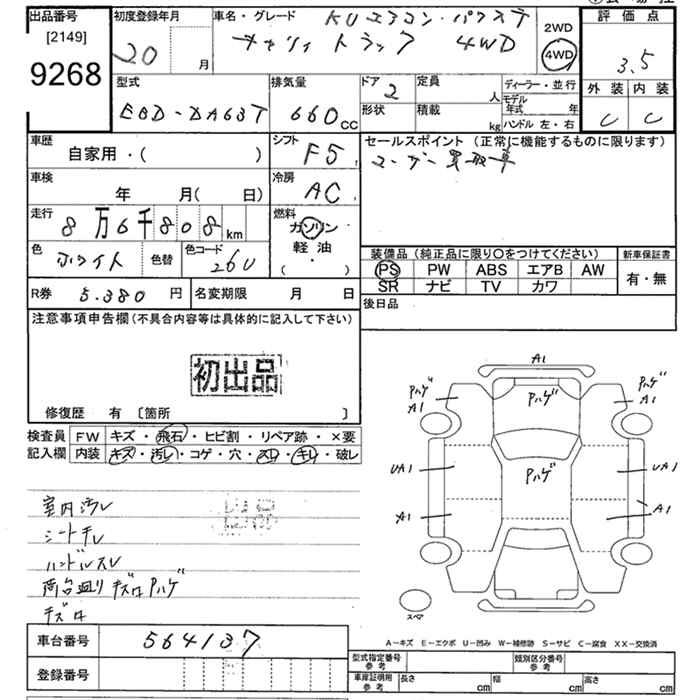 出品番号
[2149]
9268
初度登録年月
20 月
車名・グレード
KUエアコン・パワステ
キャリィ トラック 4WD
2WD
4WD
評価点
3.5
外装 内装
C C
型式
EBD-DA63T
排気量
660 cc
ドア
2
形状
定員 人
積載 kg
ディーラー・並行
モデル年式 年
ハンドル 左・右
車歴
自家用・( )
シフト
F5
セールスポイント (正常に機能するものに限ります)
ユーザー買取車
車検
年 月( 日)
冷房
AC
走行
8万6千808 km
燃料
ガソリン
軽油
( )
色
ホワイト
色替
色コード
26U
装備品 (純正品に限り〇をつけてください)
PS PW ABS エアB AW
SR ナビ TV カワ
新車保証書
有・無
R券 5.380 円
名変期限 月 日
後日品
注意事項申告欄 (不具合内容等は具体的に記入して下さい)
初出品
修復歴 有 〔箇所 〕
検査員
記入欄
FW キズ・飛石・ヒビ割・リペア跡・×要
内装 キズ・汚レ・コゲ・穴・スレ・キレ・破レ
室内汚レ
シートキレ
ハンドルスレ
荷台廻り キズ ハゲ
A1
ハゲ
ハゲ
A1
ハゲ
A1
ハゲ
UA1
UA1
A1
A1
スペア
A－キズ E－エクボ U－凹み W－補修跡 S－サビ C－腐食 XX－交換済
車台番号 564137
登録番号
型式指定番号
参考
類別区分番号
参考
車庫証明用
参考
長さ cm 幅 cm 高さ cm